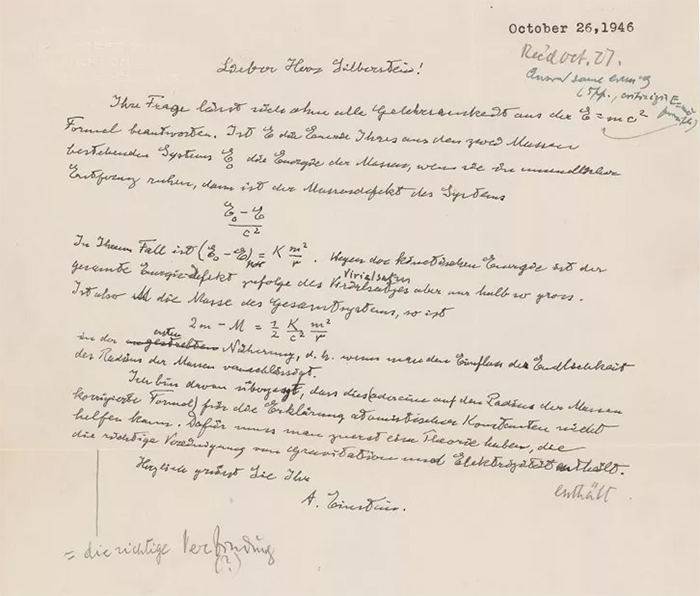 October 26, 1946
Rec'd oct. 27.
Lieber Herr Silberstein!
Ihre Frage lässt sich ohne alle Gelehrsamkeit aus der E = mc²
Formel beantworten. Ist E die Energie Ihres aus den zwei Massen
bestehenden Systems E₀ die Energie der Massen, wenn sie in unendlicher
Entfernung ruhen, dann ist der Massendefekt des Systems
E₀ - E
c²
In Ihrem Fall ist (E₀ - E) = K m²/r . Wegen der kinetischen Energie ist der
Virialsatzes
gesamte Energie-Defekt zufolge des Virialsatzes aber nur halb so gross.
Ist also M die Masse des Gesamtsystems, so ist
2m - M = 1/2 K/c² m²/r
ersten
in der Näherung, d.h. wenn man den Einfluss der Endlichkeit
des Radius der Massen vernachlässigt.
Ich bin davon überzeugt, dass dies (oder eine auf den Radius der Massen
korrigierte Formel) für die Erklärung atomistischer Konstanten nicht
helfen kann. Dafür muss man zuerst eine Theorie haben, die
die richtige Vereinigung von Gravitation und Elektrizität enthält.
enthält
Herzlich grüsst Sie Ihr
A. Einstein.
= die richtige Verbindung
(?)